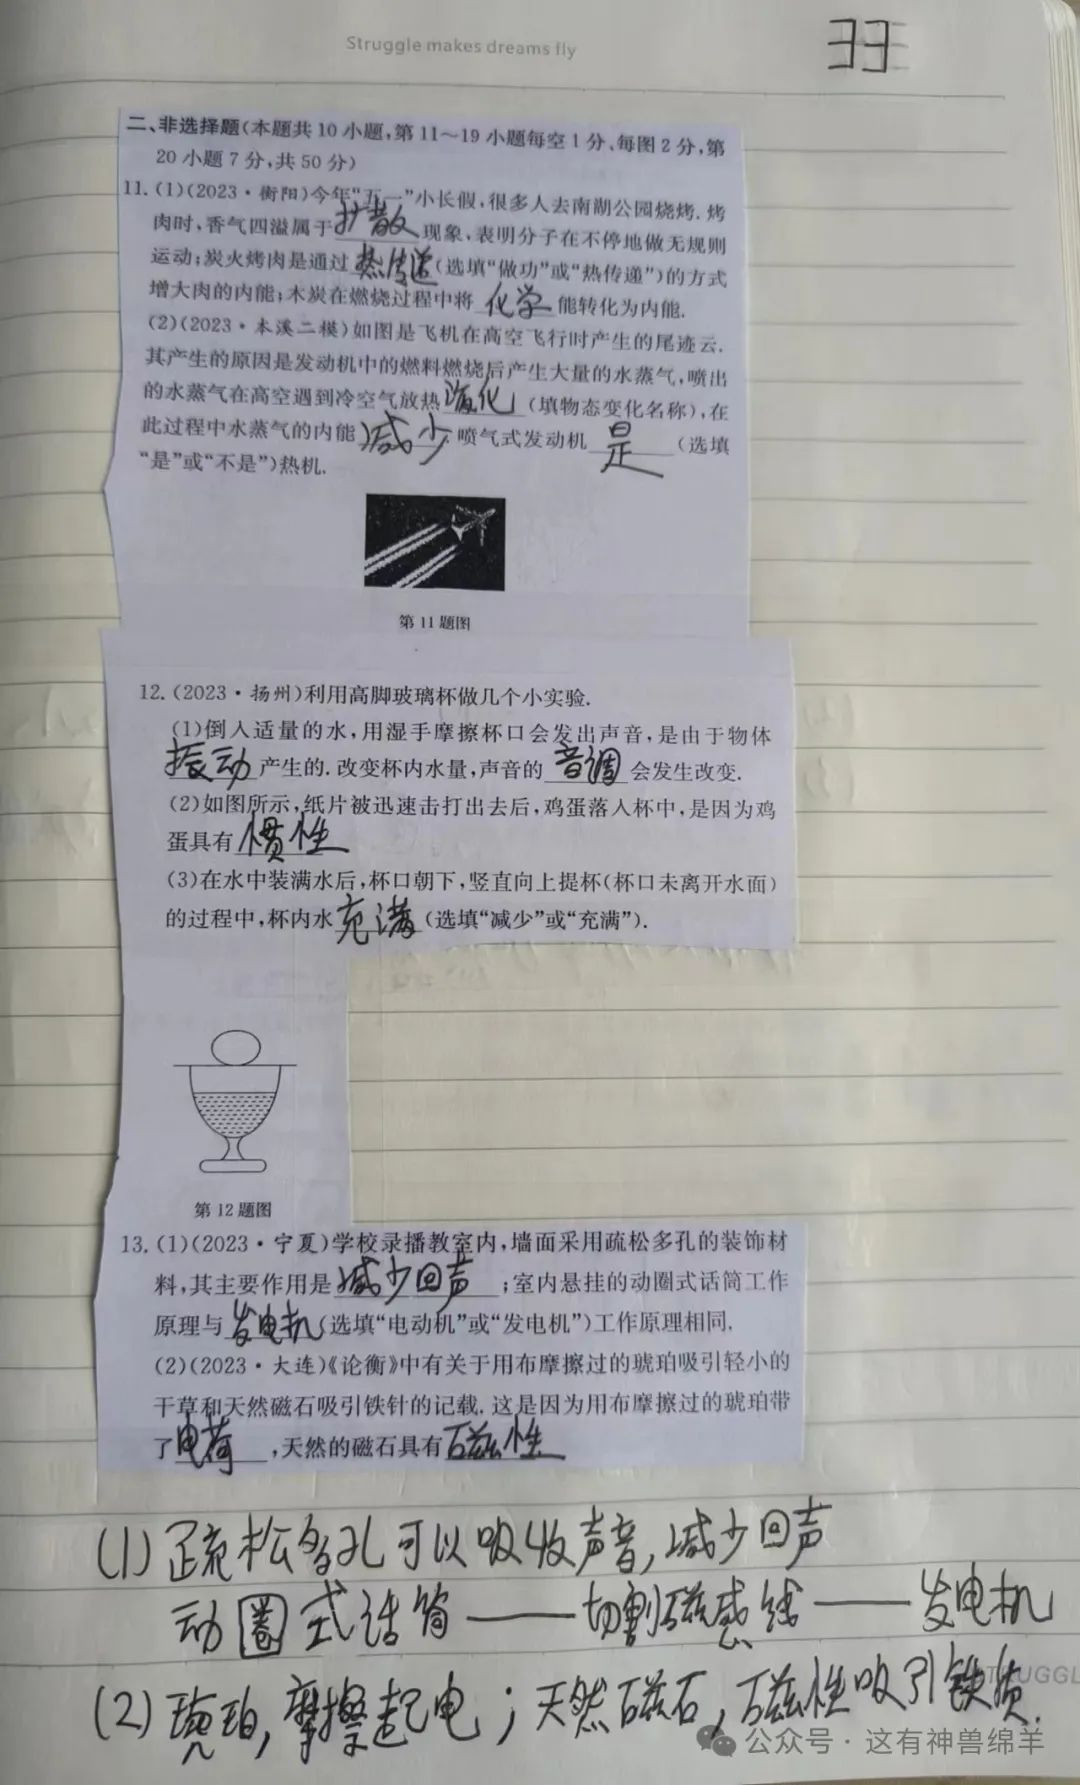 Struggle makes dreams fly
二、非选择题(本题共10小题,第11～19小题每空1分、每图2分,第
20小题7分,共50分)
11. (1)(2023·衡阳)今年“五一”小长假,很多人去南湖公园烧烤. 烤
肉时,香气四溢属于扩散现象,表明分子在不停地做无规则
运动;炭火烤肉是通过热传递(选填“做功”或“热传递”)的方式
增大肉的内能;木炭在燃烧过程中将化学能转化为内能.
(2)(2023·本溪二模)如图是飞机在高空飞行时产生的尾迹云.
其产生的原因是发动机中的燃料燃烧后产生大量的水蒸气,喷出
的水蒸气在高空遇到冷空气放热液化(填物态变化名称),在
此过程中水蒸气的内能减少. 喷气式发动机是(选填
“是”或“不是”)热机.
第11题图
12. (2023·扬州)利用高脚玻璃杯做几个小实验.
(1)倒入适量的水,用湿手摩擦杯口会发出声音,是由于物体
振动产生的. 改变杯内水量,声音的音调会发生改变.
(2)如图所示,纸片被迅速击打出去后,鸡蛋落入杯中,是因为鸡
蛋具有惯性
(3)在水中装满水后,杯口朝下,竖直向上提杯(杯口未离开水面)
的过程中,杯内水充满(选填“减少”或“充满”).
第12题图
13. (1)(2023·宁夏)学校录播教室内,墙面采用疏松多孔的装饰材
料,其主要作用是减少回声;室内悬挂的动圈式话筒工作
原理与发电机(选填“电动机”或“发电机”)工作原理相同.
(2)(2023·大连)《论衡》中有关于用布摩擦过的琥珀吸引轻小的
干草和天然磁石吸引铁针的记载. 这是因为用布摩擦过的琥珀带
了电荷,天然的磁石具有磁性
(1) 疏松多孔可以吸收声音,减少回声
动圈式话筒——切割磁感线——发电机
(2) 琥珀,摩擦起电;天然磁石,磁性吸引铁质.
STRUGGL
公众号·这有神兽绵羊